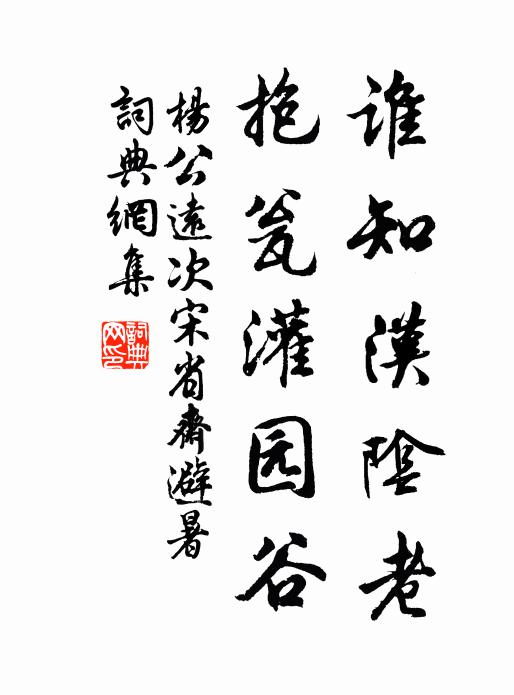 谁知漢陰老
抱瓮灌园谷
楊公遠次宋省齋避暑
詞典網集
詞典网印